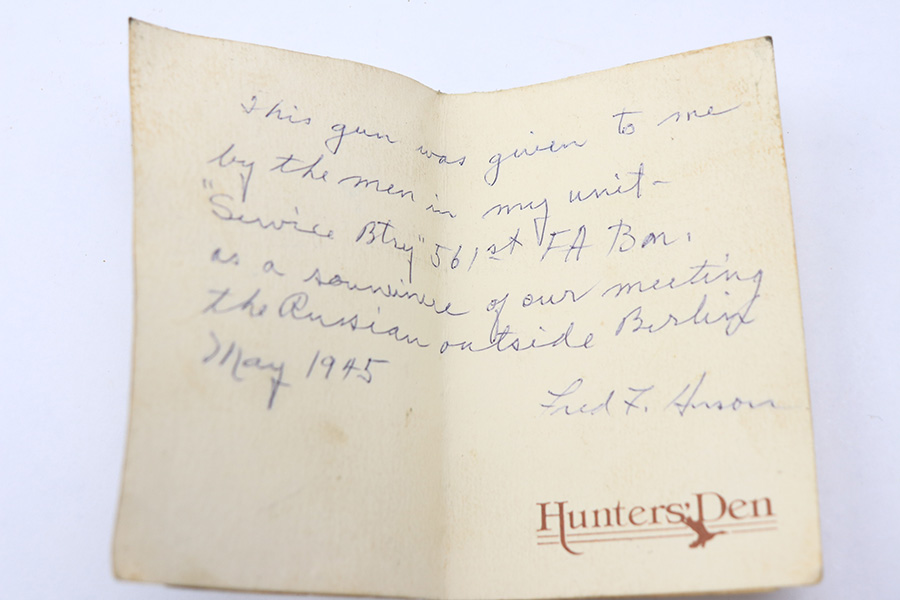 This gun was given to me
by the men in my unit-
"Service Btry" 561st FA Bn.
as a souvinire of our meeting
the Russian outside Berlin
May 1945
Fred F.
Hunters' Den